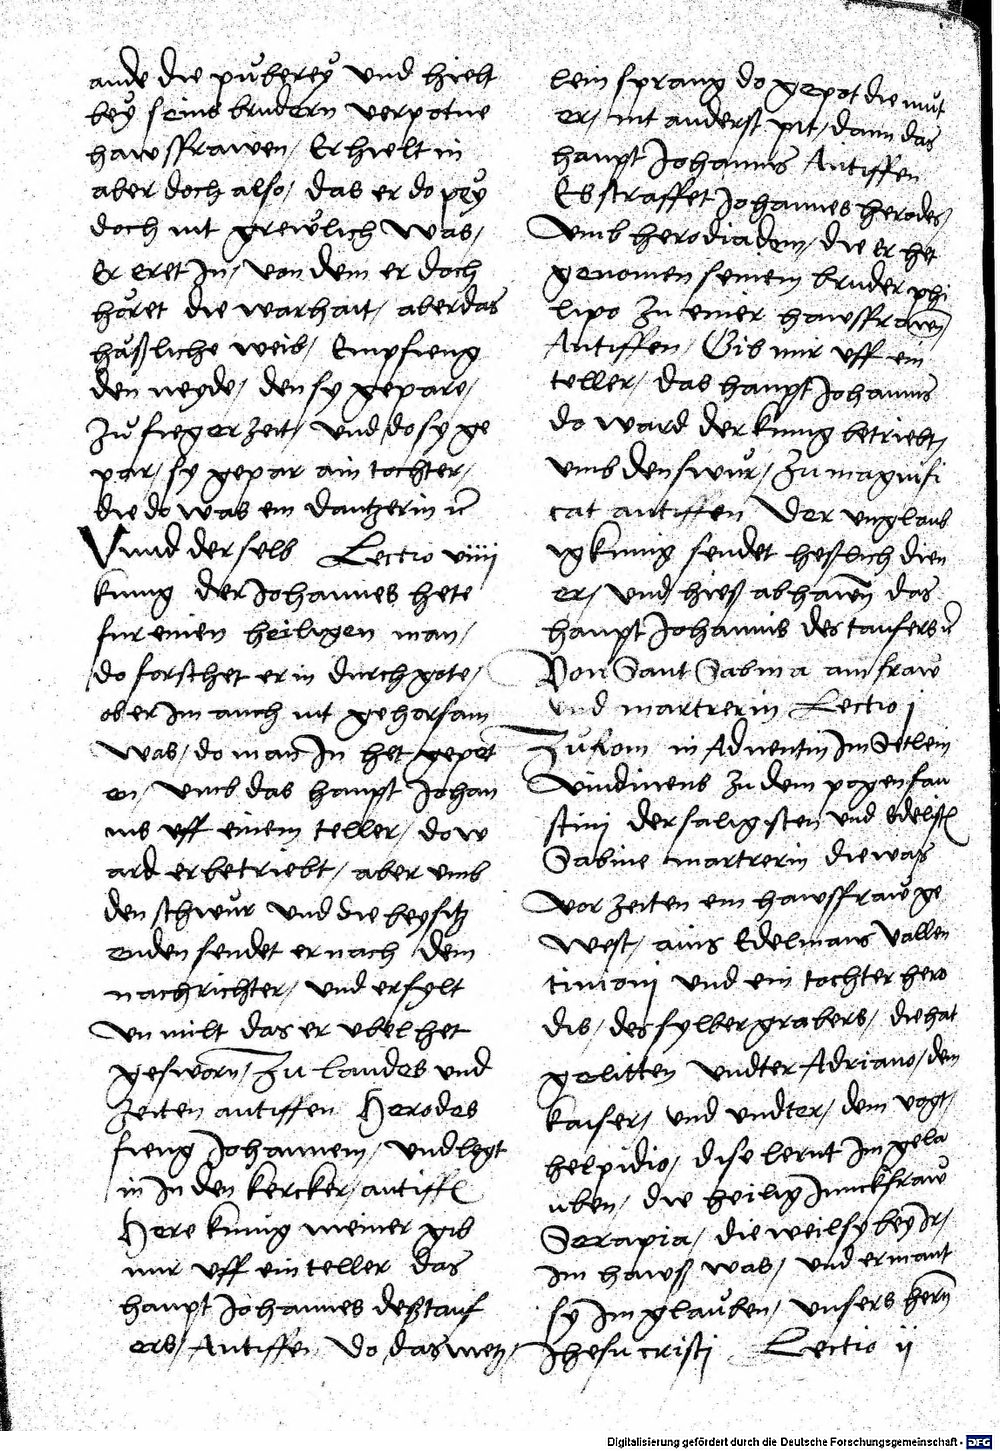 ande die puberey vnd hielt
bey seins brudern verpotne
hawsfrawen / Er hielt in
aber doch also / das er do pey
doch nit grewlich was /
Er eret In / von dem er doch
höret die warhait / aber das
häßliche weib / Empfieng
den neyde / den sy gepare /
Zu fieger zeit / vnd do sy ge
par / sy gepar ain tochter /
die do was ein dantzerin
Vnnd der selb Lectio viiii
kunig der Johannes hete
fur einen heiligen man /
do forschet er in durch gote /
ob er Im auch nit gehorsam
was / do man In het gepet
en / vmb das haupt Johan
nis vff einem teller / do w
ard er betriebt / aber vmb
den schwur vnd die beysitz
enden sendet er nach dem
nachrichter / vnd erfylt
vn milt das er vbel het
gesworn / Zu laudes vnd
zeiten antiffen Herodes
fieng Johannem / vnd legt
in In den kercker / antiffen
Here kunig meiner gib
mir vff ein teller das
haupt Johannes deß tauf
ers / Antiffen Do das mey
lein sprang do gepot die mut
er / nit anderst pit / dann das
haupt Johannis Antiffen
Es straffet Johannes herodes /
vmb herodiadem / die er het
genomen seinem bruder phi
lipo zu einer hawsfrawen
Antiffen / Gib mir vff ein
teller / das haupt Johannis
do ward der kunig betriebt /
vmb den swur / Zu magnifi
cat antiffen Der vnglaub
ig kunig sendet heßlich dien
er / vnd hieß abhawen das
haupt Johannis des taufers
Von Sant Sabina ain fraw
vnd martrerin Lectio j
Zu Rom in Adventin Im
Vindiciens zu dem pogen fau
stini der saligisten vnd Edelsten
Sabine martrerin die was
vor zeiten ein hawsfraw ge
west / ains Edelmans Vallen
tinioni vnd ein tochter hero
dis / des sylbergrabers / die hat
gelitten vndter Adriano / dem
kaiser / vnd vndter / dem vogt /
helpidio / dise lernt Im gela
uben / die heilig Junckfraw
Serapia / die weil sy bey Ir /
Im hawß was / vnd ermant
sy Im glauben / vnsers hern
Jhesu cristi Lectio ij
Digitalisierung gefördert durch die Deutsche Forschungsgemeinschaft - DFG